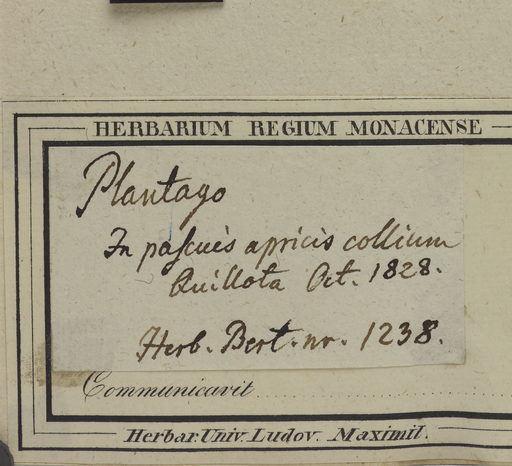 HERBARIUM REGIUM MONACENSE
Plantago
In pascuis apricis collium
Quillota Oct. 1828.
Herb. Bert. nr. 1238.
Communicavit
Herbar. Univ. Ludov. Maximil.